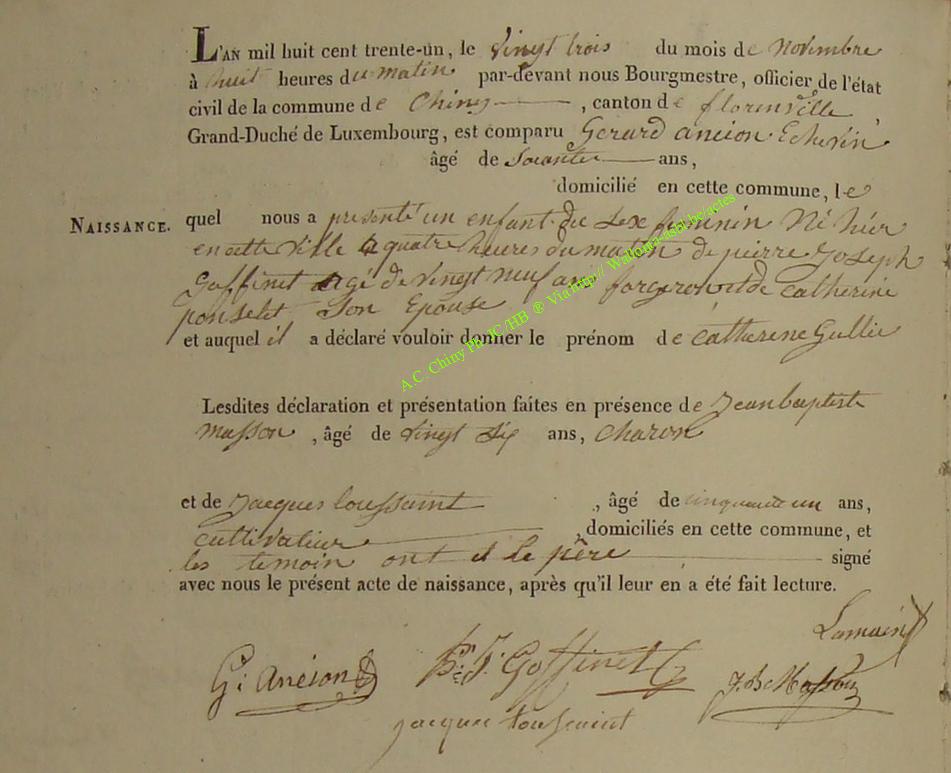 L'AN mil huit cent trente-un, le vingt trois du mois de novembre
à huit heures du matin par-devant nous Bourgmestre, officier de l'état
civil de la commune de Chiny , canton de florenville ,
Grand-Duché de Luxembourg, est comparu Gerard ancion Echevin
âgé de Soixante ans,
domicilié en cette commune, le
NAISSANCE. quel nous a presenté un enfant du sex feminin Né hier
en cette ville a quatre heures du matin de pierre Joseph
Goffinet agé de vingt neuf ans forgeron et de Catherine
ponselet Son Epouse
et auquel il a déclaré vouloir donner le prénom de Catherine Gullie
A.C. Chiny PB JC /HB ® Via http// Wallonia-asbl.be/actes
Lesdites déclaration et présentation faites en présence de Jean baptiste
masson , âgé de vingt six ans, charon
et de Jacques toussaint , âgé de cinquante un ans,
cultivateur domiciliés en cette commune, et
les temoin ont et le père signé
avec nous le présent acte de naissance, après qu'il leur en a été fait lecture.
G: Ancion P: J: Goffinet J. B. Masson
jacques toussaint